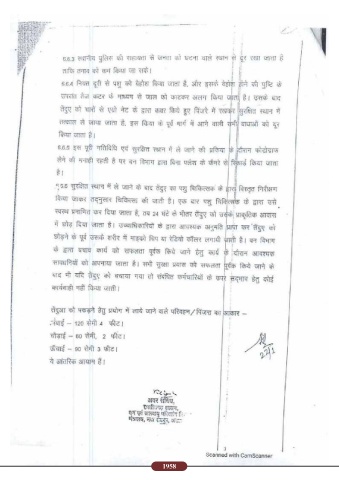 6.6.3 स्थानीय पुलिस की सहायता से जनता को घटना वाले स्थान से दूर रखा जाता है
ताकि तनाव को कम किया जा सके।
6.6.4 नियत दूरी से पशु को बेहोश किया जाता है, और इसके बेहोश होने की पुष्टि के
उपरांत तेज कटर के माध्यम से जाल को काटकर अलग किया जाता है। उसके बाद
तेंदुए को चारों से एग्रो नेट के द्वारा कवर किये हुए पिंजरे में रखकर सुरक्षित स्थान में
तत्काल ले जाया जाता है, इस क्रिया के पूर्व मार्ग में आने वाली सभी बाधाओं को दूर
किया जाता है।
6.6.5 इस पूरी गतिविधि एवं सुरक्षित स्थान में ले जाने की प्रक्रिया के दौरान फोटोग्राफ
लेने की मनाही रहती है पर वन विभाग द्वारा बिना फ्लैश के कैमरे से रिकार्ड किया जाता
है।
सुरक्षित स्थान में ले जाने के बाद तेंदुए का पशु चिकित्सक के द्वारा विस्तृत निरीक्षण
किया जाकर तद्नुसार चिकित्सा की जाती है। एक बार पशु चिकित्सक के द्वारा उसे
स्वस्थ प्रमाणित कर दिया जाता है, तब 24 घंटे के भीतर तेंदुए को उसके प्राकृतिक आवास
में छोड़ दिया जाता है। उच्चाधिकारियों के द्वारा आवश्यक अनुमति प्राप्त कर तेंदुए को
छोड़ने के पूर्व उसके शरीर में माइक्रो चिप या रेडियो कॉलर लगायी जाती है। वन विभाग
के द्वारा बचाव कार्य को सफलता पूर्वक किये जाने हेतु कार्य के दौरान आवश्यक
सावधानियों को अपनाया जाता है। सभी सुरक्षा प्रयास को सफलता पूर्वक किये जाने के
बाद भी यदि तेंदुए को बचाया गया तो संबंधित कर्मचारियों के ऊपर सद्भाव हेतु कोई
कार्यवाही नहीं किया जाती।
तेंदुआ को पकड़ने हेतु प्रयोग में लाये जाने वाले परिवहन/पिंजरा का आकार –
लंबाई – 120 सेमी 4 फीट।
चौड़ाई – 60 सेमी, 2 फीट।
ऊँचाई – 90 सेमी 3 फीट।
ये आंतरिक आयाम हैं।
अवर सचिव,
छत्तीसगढ़ शासन,
वन एवं जलवायु परिवर्तन
3
Scanned with CamScanner
1958